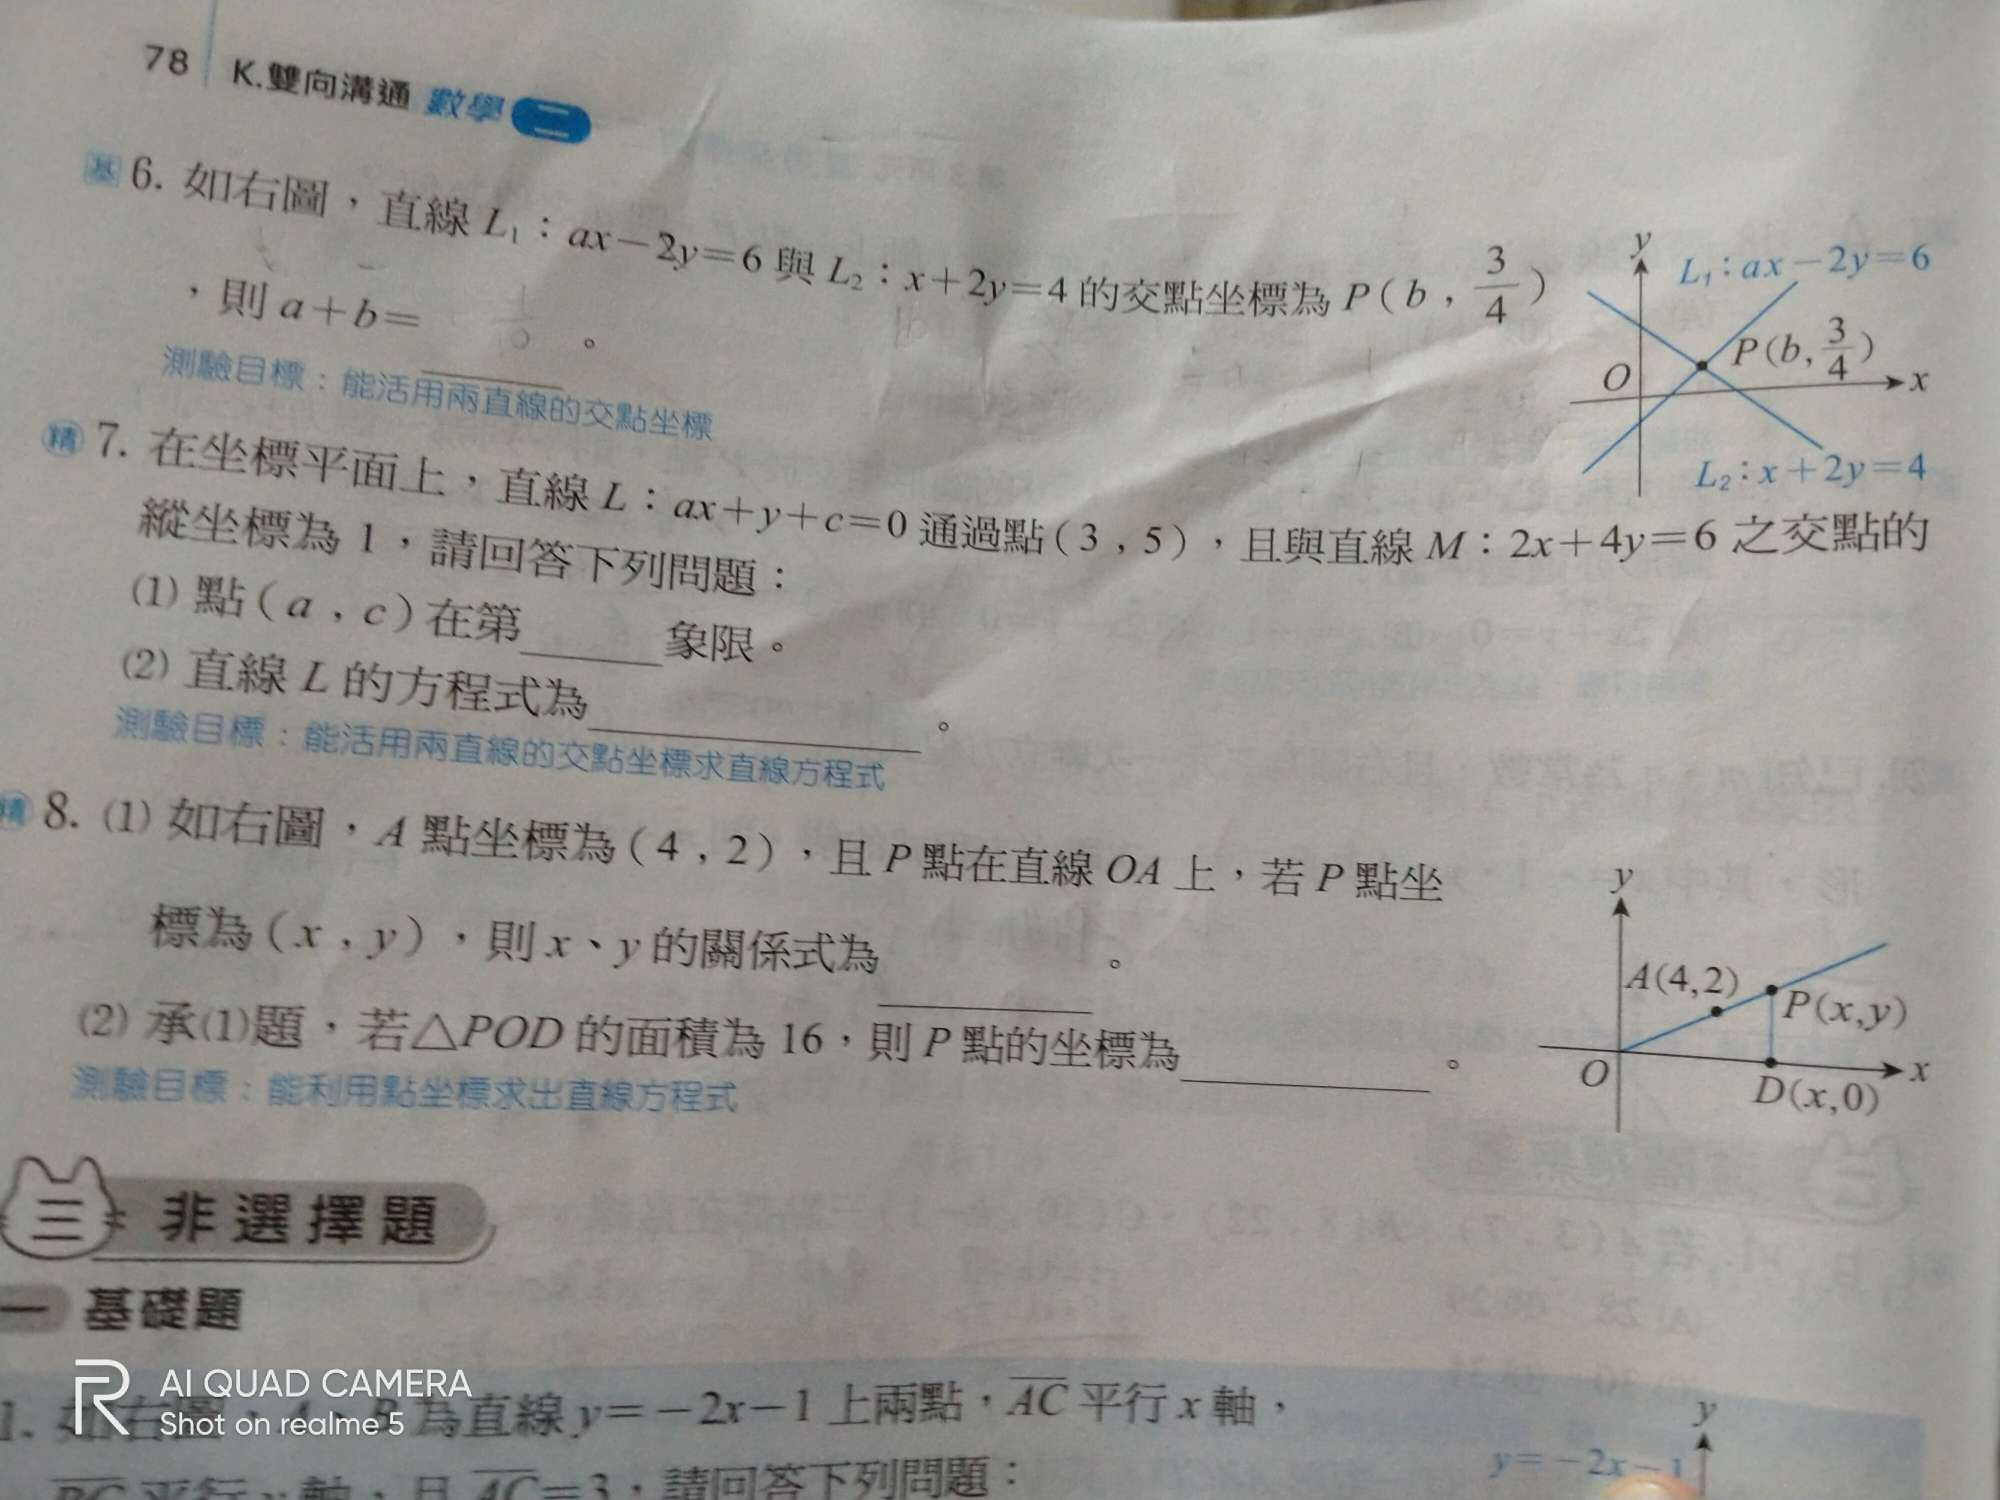 78 K.雙向溝通 數學 二
基 6. 如右圖，直線 L₁：ax－2y＝6 與 L₂：x＋2y＝4 的交點坐標為 P(b，3/4)
，則 a＋b＝ 。
測驗目標：能活用兩直線的交點坐標
y
L₁：ax－2y＝6
P(b, 3/4)
O
x
L₂：x＋2y＝4
精 7. 在坐標平面上，直線 L：ax＋y＋c＝0 通過點(3，5)，且與直線 M：2x＋4y＝6 之交點的
縱坐標為 1，請回答下列問題：
(1) 點(a，c)在第 象限。
(2) 直線 L 的方程式為 。
測驗目標：能活用兩直線的交點坐標求直線方程式
精 8. (1) 如右圖，A 點坐標為(4，2)，且 P 點在直線 OA 上，若 P 點坐
標為(x，y)，則 x、y 的關係式為 。
(2) 承(1)題，若△POD 的面積為 16，則 P 點的坐標為 。
測驗目標：能利用點坐標求出直線方程式
y
A(4,2)
P(x,y)
O
x
D(x,0)
三 非選擇題
一 基礎題
1. 如右圖，A、B 為直線 y＝－2x－1 上兩點，AC 平行 x 軸，
BC 平行 y 軸，且 AC＝3，請回答下列問題：
y
y＝－2x－1
R AI QUAD CAMERA
Shot on realme 5